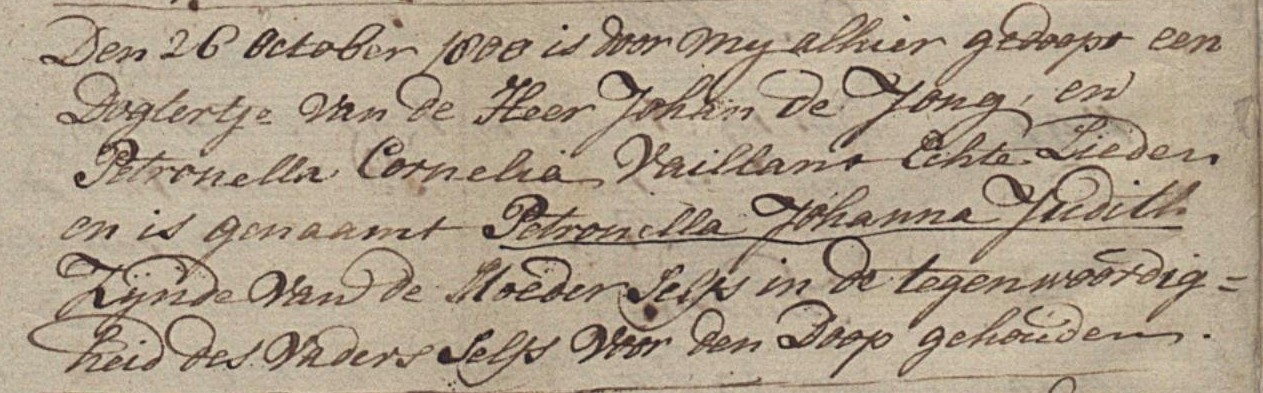 Den 26 October 1800 is door my alhier gedoopt een
Dogtertje van de Heer Johan de Jong, en
Petronella Cornelia Vaillant Echte Lieden
en is genaamt Petronella Johanna Judith
Zÿnde van de Moeder Selfs in de tegenwoordig=
heid des Vaders Selfs voor den Doop gehouden.